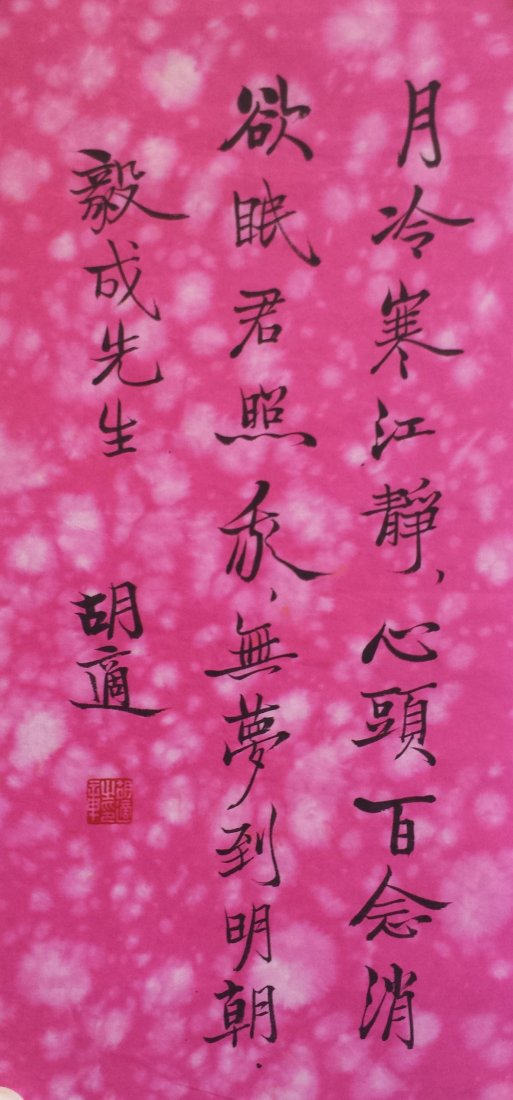 月冷寒江靜，心頭百念消
欲眠君照我，無夢到明朝．
毅成先生
胡適